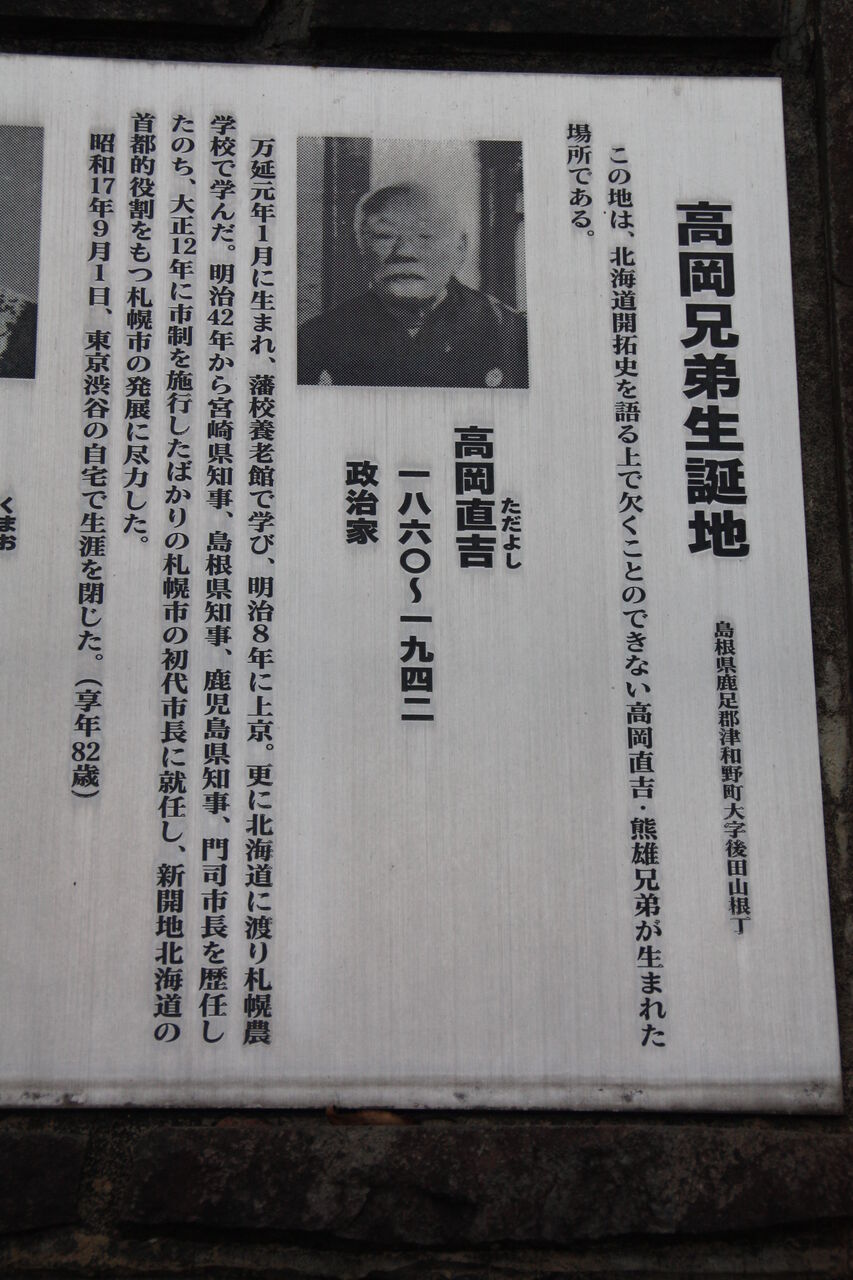 高岡兄弟生誕地
島根県鹿足郡津和野町大字後田山根丁
この地は、北海道開拓史を語る上で欠くことのできない高岡直吉・熊雄兄弟が生まれた
場所である。
ただよし
高岡直吉
一八六〇〜一九四二
政治家
万延元年1月に生まれ、藩校養老館で学び、明治8年に上京。更に北海道に渡り札幌農
学校で学んだ。明治42年から宮崎県知事、島根県知事、鹿児島県知事、門司市長を歴任し
たのち、大正12年に市制を施行したばかりの札幌市の初代市長に就任し、新開地北海道の
首都的役割をもつ札幌市の発展に尽力した。
昭和17年9月1日、東京渋谷の自宅で生涯を閉じた。（享年82歳）
くまお